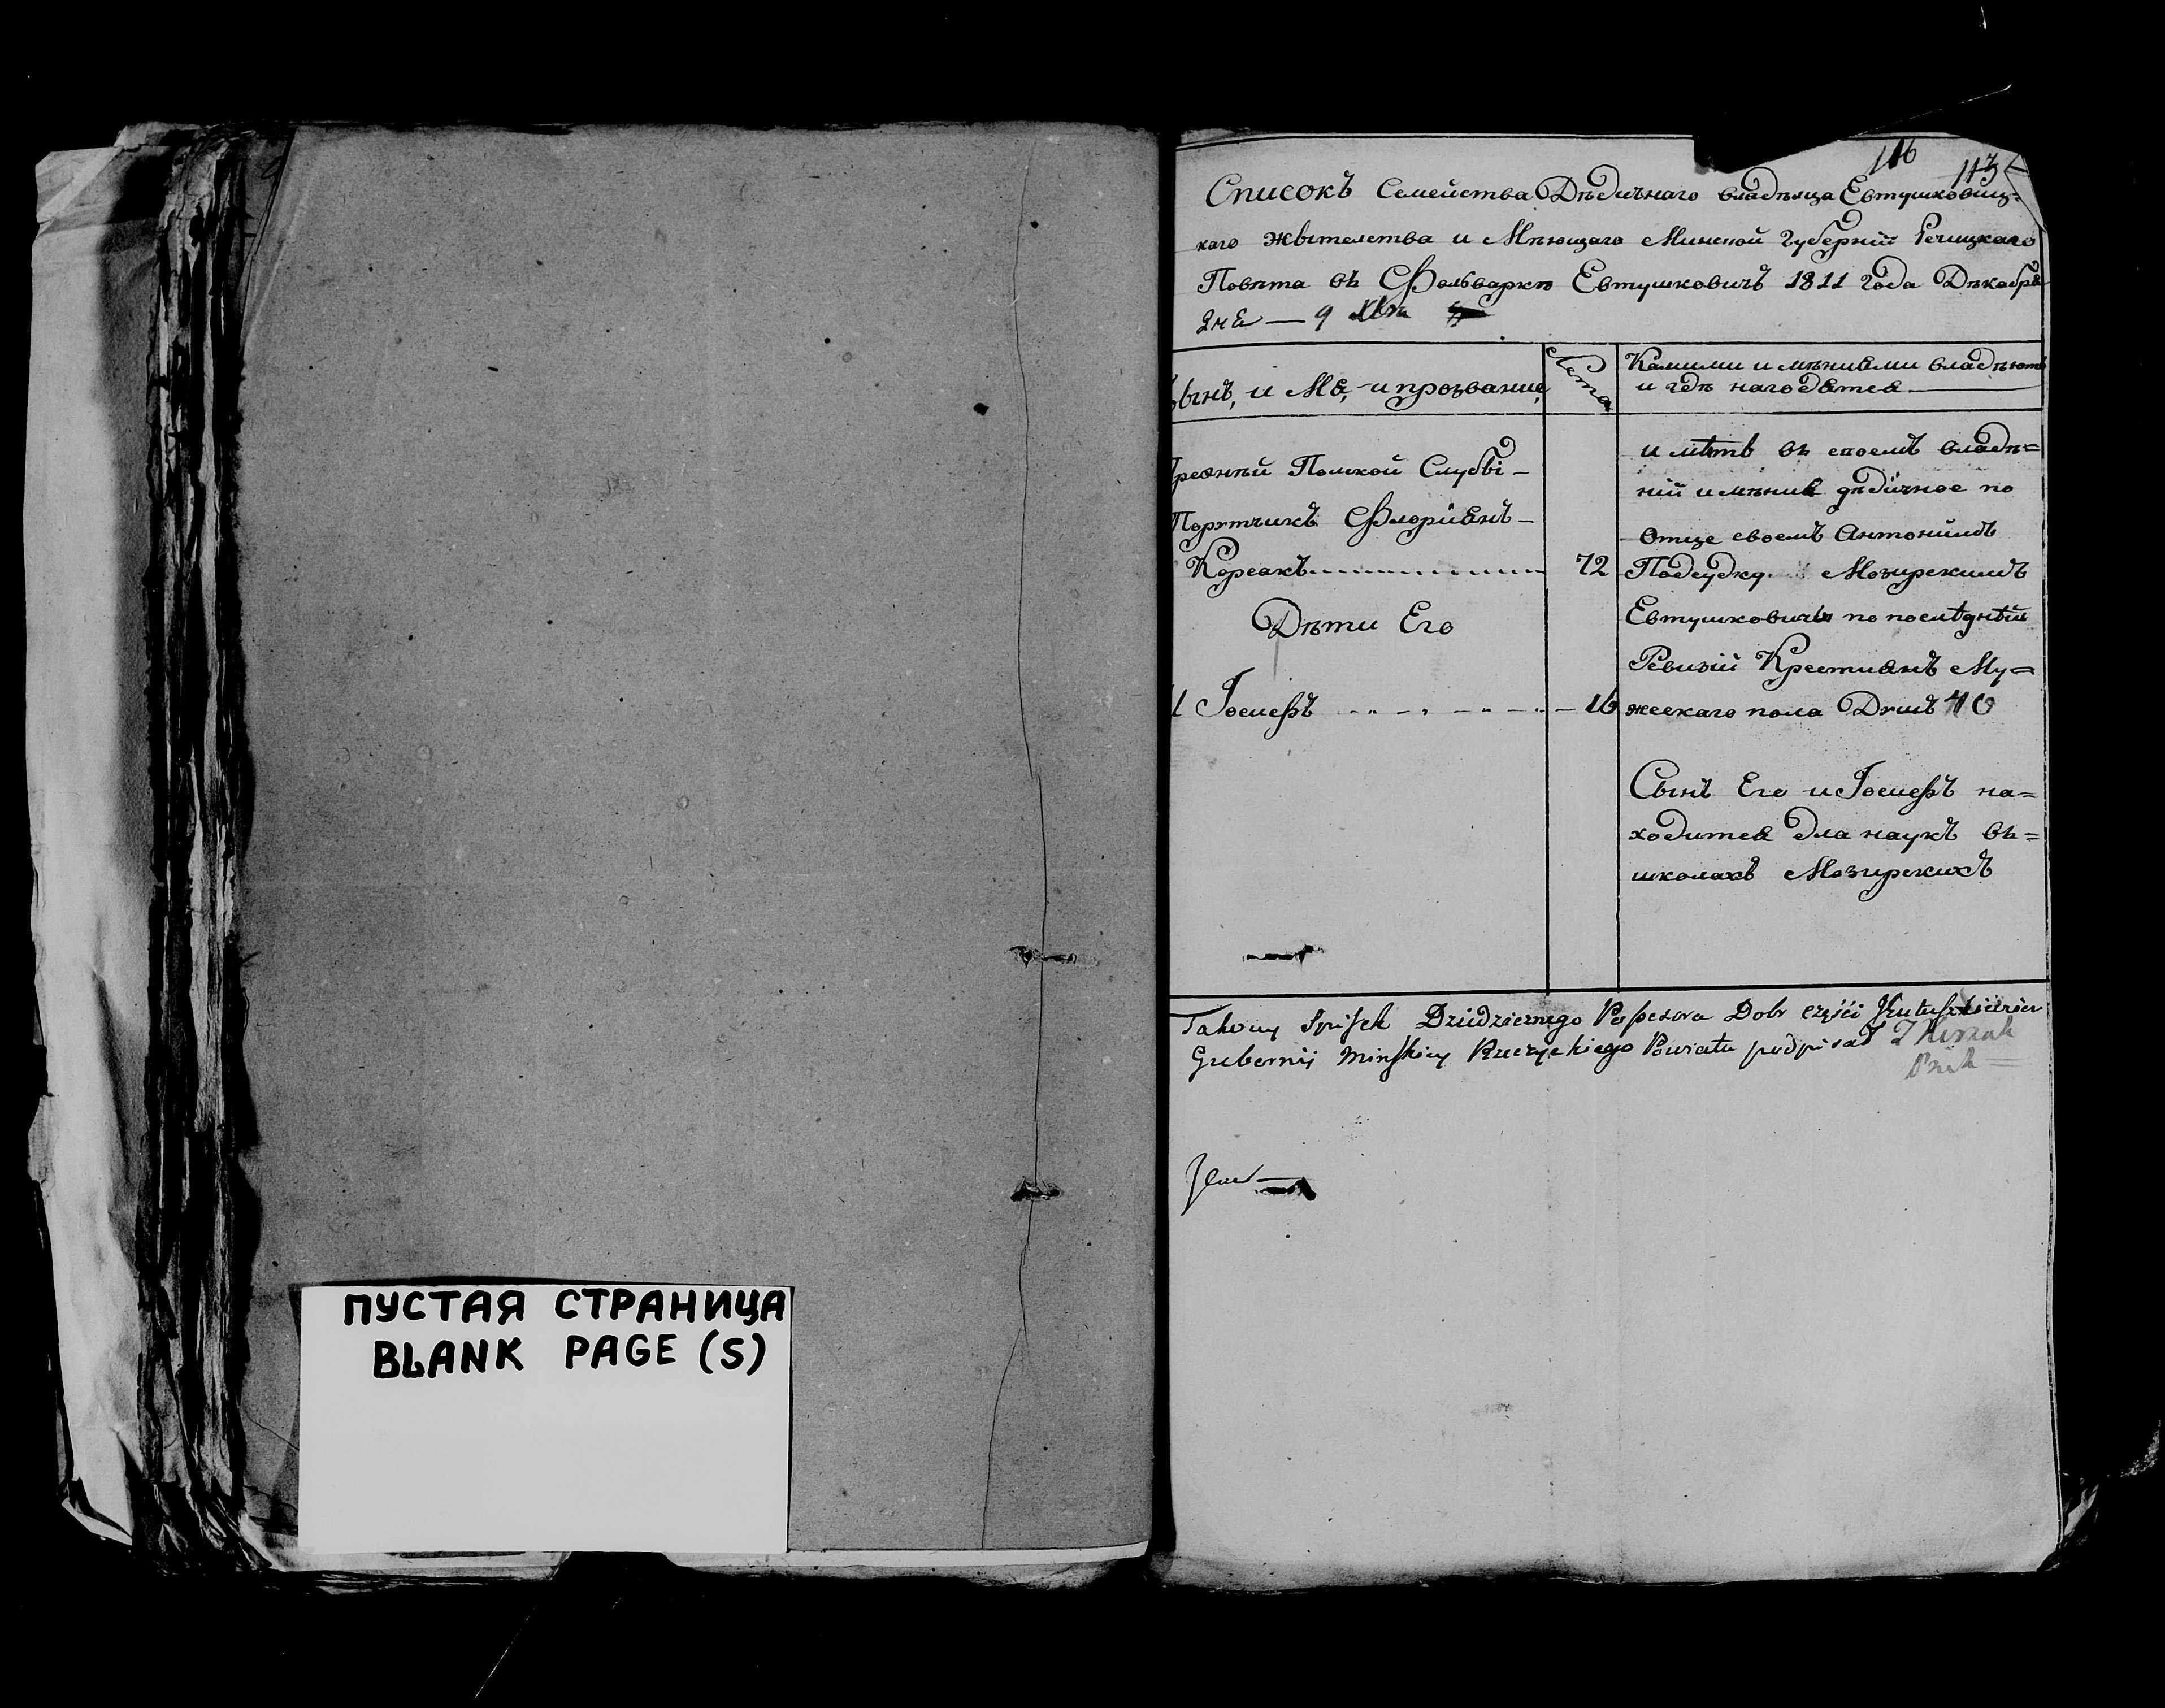 ПУСТАЯ СТРАНИЦА
BLANK PAGE (S)
116 113
Списокъ Семейства Дѣдичнаго владѣлца Евтушковиц-
каго жытелства и Мѣющаго Минской Губерніи Речицкаго
Повѣта въ Фольваркѣ Евтушковичъ 1811 года Дѣкабря
дня — 9
Чынъ, и Мя, и прозвание,
Лета
Какими имѣниями владѣютъ
и гдѣ нагодятся
Польской Службі —
Портчикъ Флориянъ —
Корсакъ 72
Дѣти Его
1 Іосифъ 16
имѣетъ въ своемъ владѣ=
нии имѣние дѣдичное по
Отце своемъ Антонимъ
Подсудку Мозирскимъ
Евтушковичъ по послѣднѣй
Ревизіи Крестиянъ Му=
жескаго пола Душъ 40
Сынъ Его и Іосифъ на=
ходится для наукъ въ=
школахъ Мозирскихъ
Takowy Spisek Dziedzicznego Possesora Dobr części
Gubernij Minskiey Rzeczyckiego Powiatu podpisał